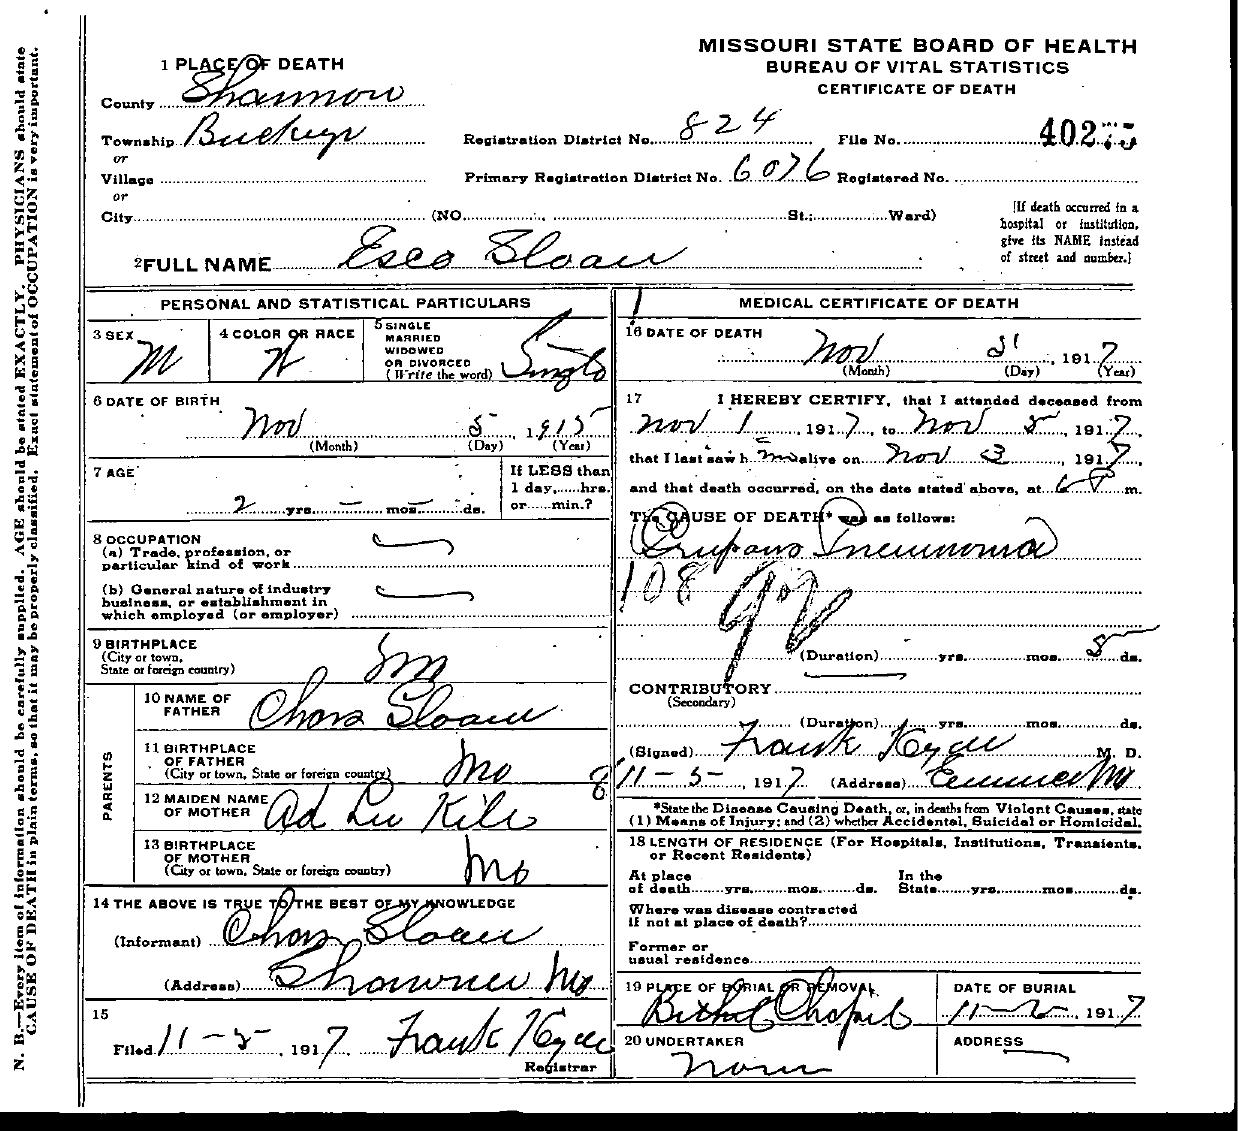 MISSOURI STATE BOARD OF HEALTH
BUREAU OF VITAL STATISTICS
CERTIFICATE OF DEATH
1 PLACE OF DEATH
County Shannon
Township
or
Village
or
City (NO. St.; Ward)
Registration District No. 824 File No. 40275
Primary Registration District No. 6076 Registered No.
[If death occurred in a
hospital or institution,
give its NAME instead
of street and number.]
2 FULL NAME Esco Sloan
PERSONAL AND STATISTICAL PARTICULARS
3 SEX M
4 COLOR OR RACE W
5 SINGLE
MARRIED
WIDOWED
OR DIVORCED
(Write the word) Single
6 DATE OF BIRTH
Nov 5, 1915
(Month) (Day) (Year)
7 AGE
2 yrs. – mos. – ds.
If LESS than
1 day, hrs.
or min.?
8 OCCUPATION
(a) Trade, profession, or
particular kind of work
(b) General nature of industry
business, or establishment in
which employed (or employer)
9 BIRTHPLACE
(City or town,
State or foreign country)
PARENTS
10 NAME OF
FATHER Chas Sloan
11 BIRTHPLACE
OF FATHER
(City or town, State or foreign country) Mo
12 MAIDEN NAME
OF MOTHER Ad Lu Kile
13 BIRTHPLACE
OF MOTHER
(City or town, State or foreign country) Mo
14 THE ABOVE IS TRUE TO THE BEST OF MY KNOWLEDGE
(Informant) Chas Sloan
(Address) Shawnee Mo
15
Filed 11–5, 1917 Frank Hyde
Registrar
MEDICAL CERTIFICATE OF DEATH
16 DATE OF DEATH
Nov 5, 1917
(Month) (Day) (Year)
17 I HEREBY CERTIFY, that I attended deceased from
Nov 1, 1917, to Nov 5, 1917,
that I last saw h im alive on Nov 3, 1917,
and that death occurred, on the date stated above, at 6 P m.
The CAUSE OF DEATH* was as follows:
Crupous Pneumonia
108 92
(Duration) yrs. mos. 5 ds.
CONTRIBUTORY
(Secondary)
(Duration) yrs. mos. ds.
(Signed) Frank Hyde M. D.
11-5-, 1917 (Address) Eminence Mo
*State the Disease Causing Death, or, in deaths from Violent Causes, state
(1) Means of Injury; and (2) whether Accidental, Suicidal or Homicidal.
18 LENGTH OF RESIDENCE (For Hospitals, Institutions, Transients,
or Recent Residents)
At place
of death yrs. mos. ds.
In the
State yrs. mos. ds.
Where was disease contracted
if not at place of death?
Former or
usual residence
19 PLACE OF BURIAL OR REMOVAL
DATE OF BURIAL
11-, 1917
20 UNDERTAKER
None
ADDRESS
N. B.—Every item of information should be carefully supplied. AGE should be stated EXACTLY. PHYSICIANS should state
CAUSE OF DEATH in plain terms, so that it may be properly classified. Exact statement of OCCUPATION is very important.